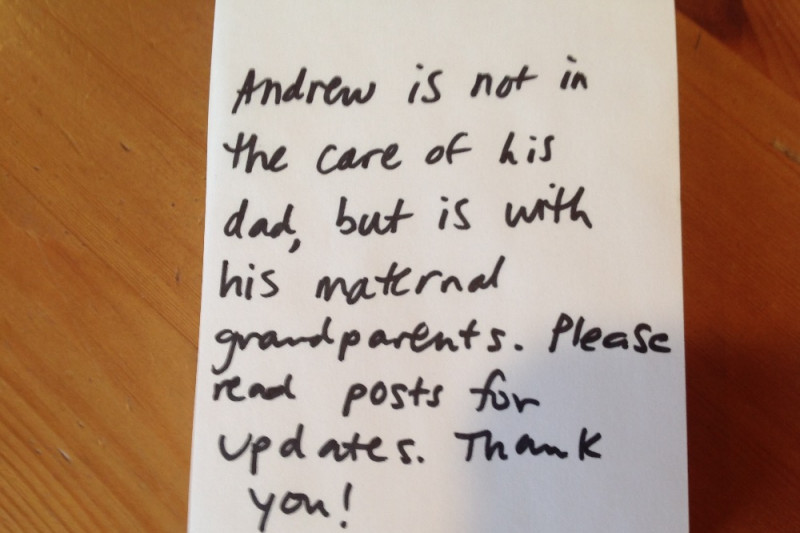 Andrew is not in
the care of his
dad, but is with
his maternal
grandparents. Please
read posts for
updates. Thank
you!